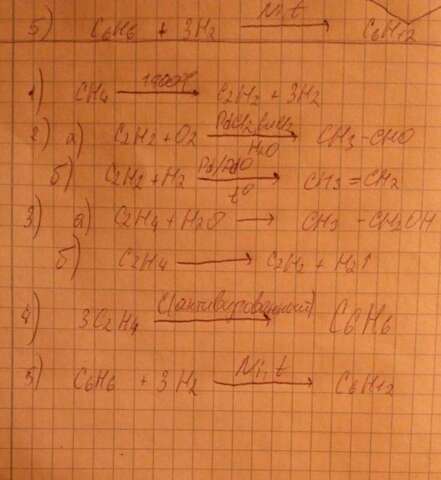 5) C6H6 + 3H2 Ni, t → C6H12
1) CH4 1500°C → C2H2 + 3H2
2) а) C2H2 + O2 PdCl2, CuCl2 H2O → CH3 - CHO
б) C2H2 + H2 Pd/PbO t° → CH3 = CH2
3) а) C2H4 + H2O → CH3 - CH2OH
б) C2H4 → C2H2 + H2↑
4) 3C2H4 C(активированный) → C6H6
5) C6H6 + 3H2 Ni, t → C6H12